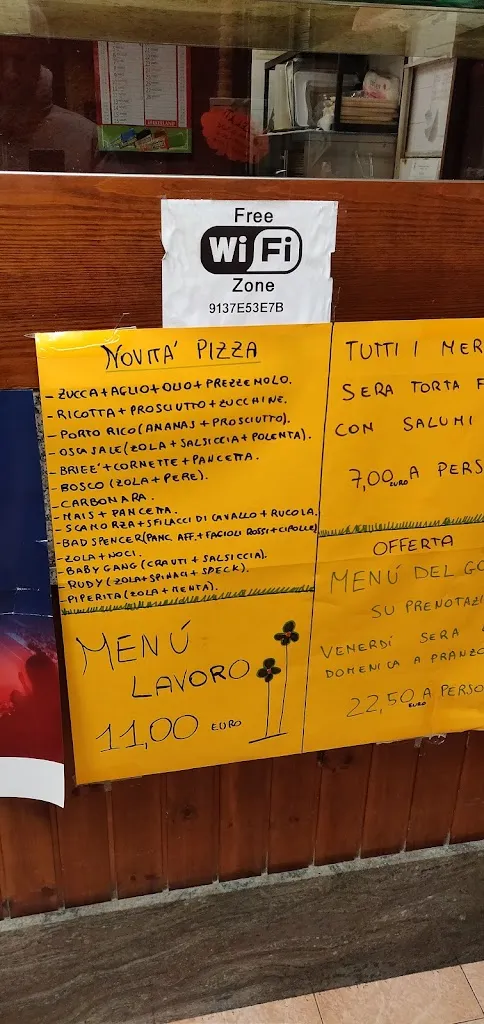 Free
Wi Fi
Zone
9137E53E7B
NOVITA' PIZZA
- ZUCCA+AGLIO+OLIO+PREZZEMOLO.
- RICOTTA+PROSCIUTTO+ZUCCHINE.
- PORTO RICO(ANANAS+PROSCIUTTO).
- OSCASALE(ZOLA+SALSICCIA+POLENTA).
- BRIEE'+CORNETTE+PANCETTA.
- BOSCO (ZOLA+PERE).
- CARBONARA.
- MAIS+PANCETTA.
- SCAMORZA+SFILACCI DI CAVALLO+RUCOLA.
- BAD SPENCER(PANC. AFF.+FAGIOLI ROSSI+CIPOLLE)
- ZOLA+NOCI.
- BABY GANG (CRAUTI+SALSICCIA).
- RUDY (ZOLA+SPINACI+SPECK).
- PIPERITA (ZOLA+MENTA).
MENÚ
LAVORO
11,00 EURO
TUTTI I MER
SERA TORTA F
CON SALUMI
7,00 EURO A PERS
OFFERTA
MENÚ DEL GO
SU PRENOTAZI
VENERDÍ SERA
DOMENICA A PRANZO
22,50 EURO A PERSO